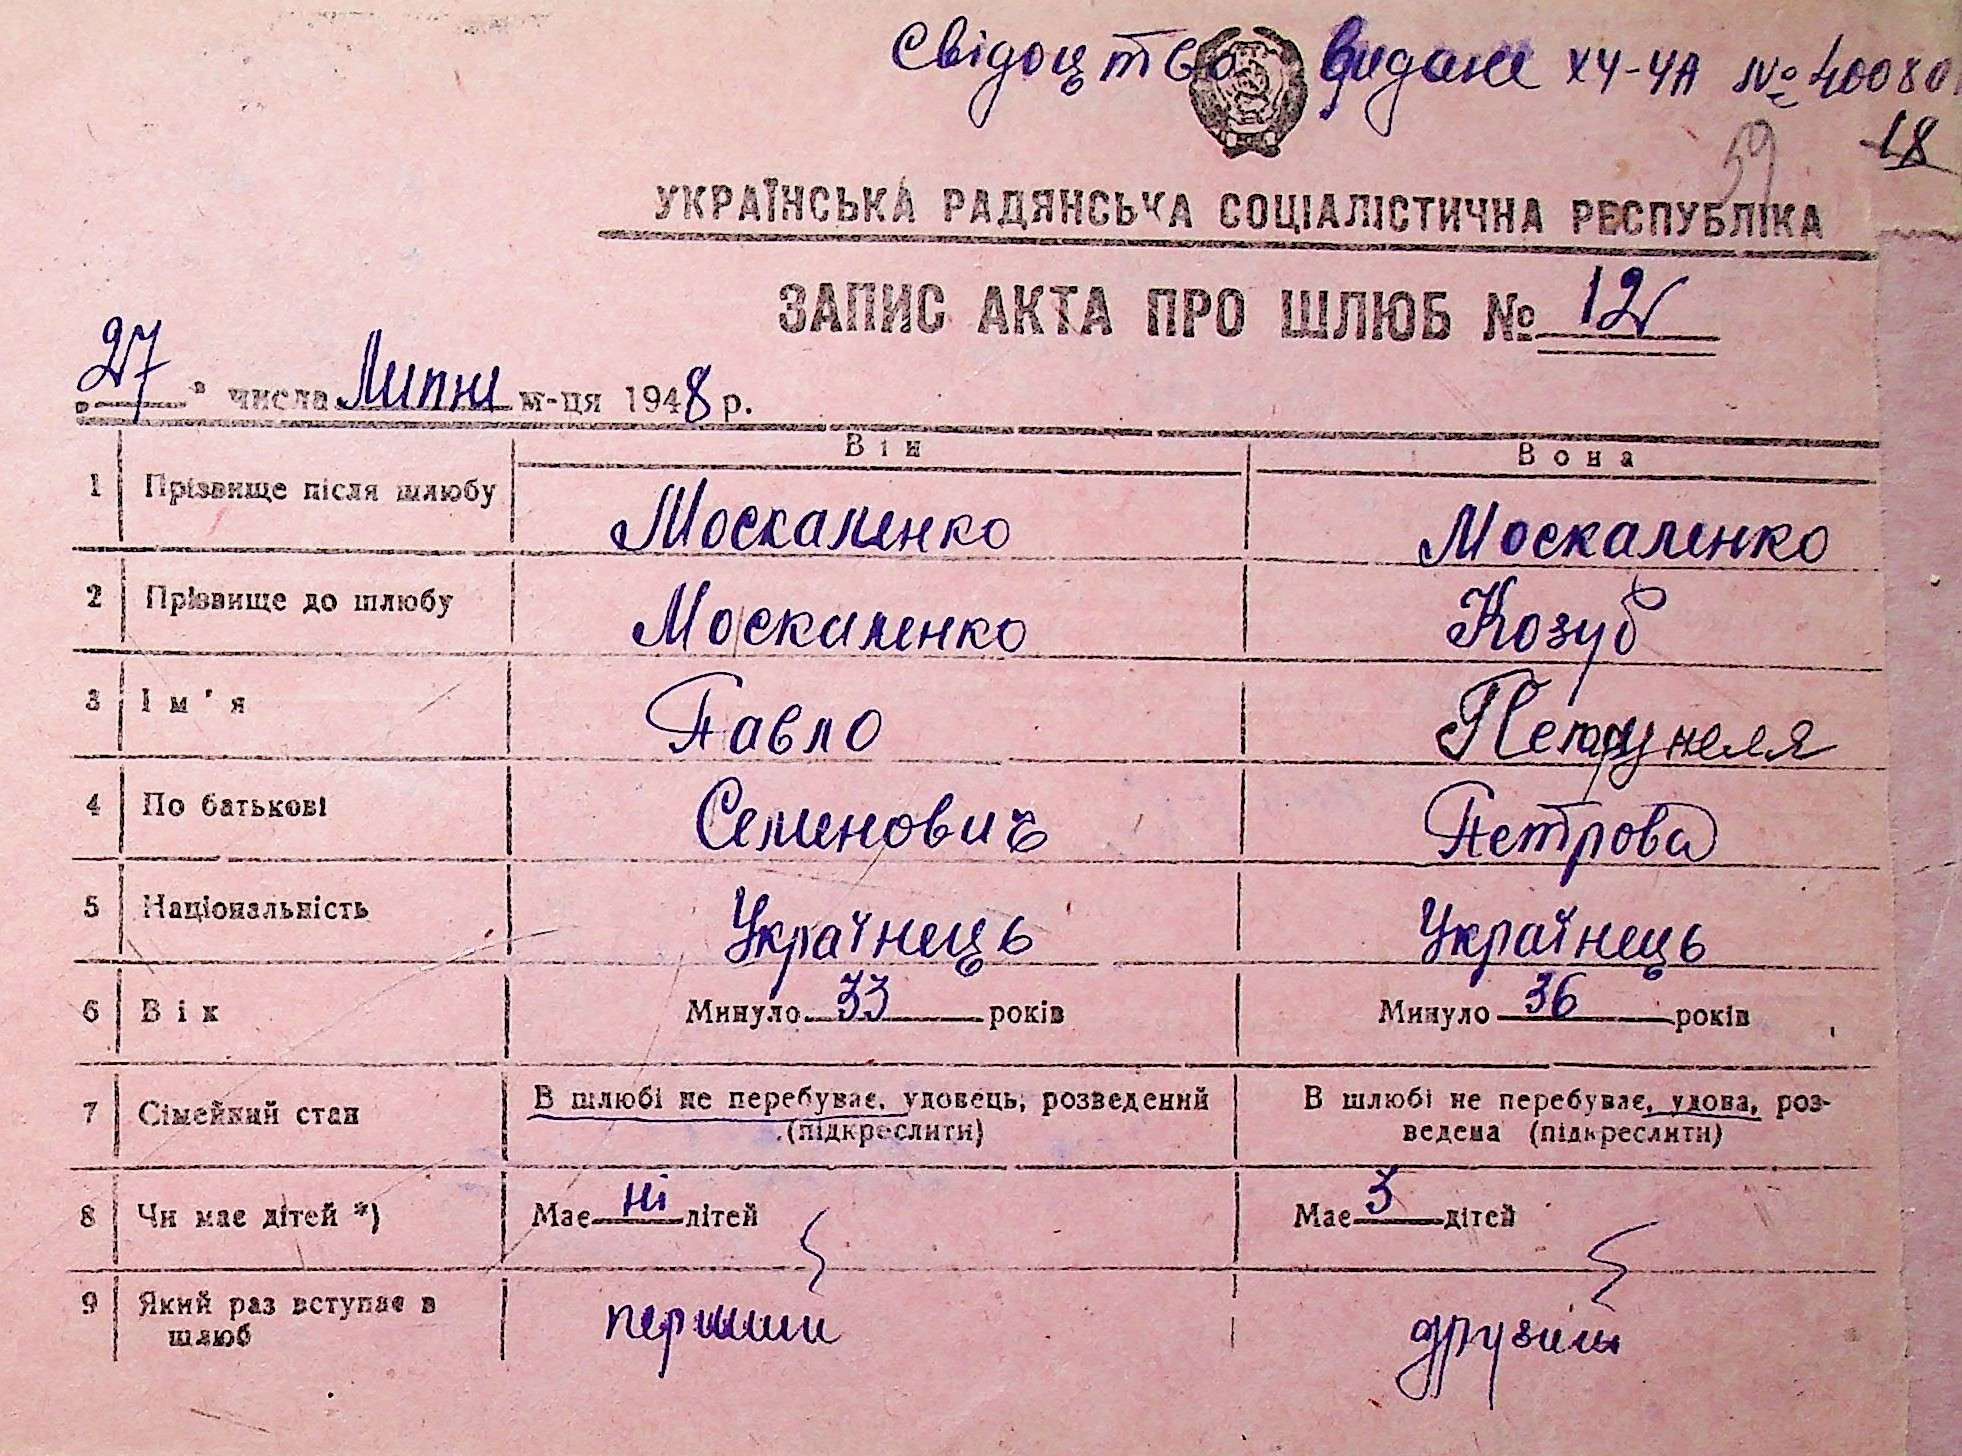 Свідоцтво видане ХЧ-ЧА № 40080
59 18
УКРАЇНСЬКА РАДЯНСЬКА СОЦІАЛІСТИЧНА РЕСПУБЛІКА
ЗАПИС АКТА ПРО ШЛЮБ № 12
„27" числа Липня м-ця 1948 р.
Він Вона
1 Прізвище після шлюбу Москаленко Москаленко
2 Прізвище до шлюбу Москаленко Козуб
3 Ім'я Павло Петрунеля
4 По батькові Семенович Петрова
5 Національність Українець Українець
6 Вік Минуло 33 років Минуло 36 років
7 Сімейний стан В шлюбі не перебуває, удовець, розведений В шлюбі не перебуває, удова, роз-
(підкреслити) ведена (підкреслити)
8 Чи має дітей *) Має ні дітей Має 3 дітей
9 Який раз вступає в перший другий
шлюб